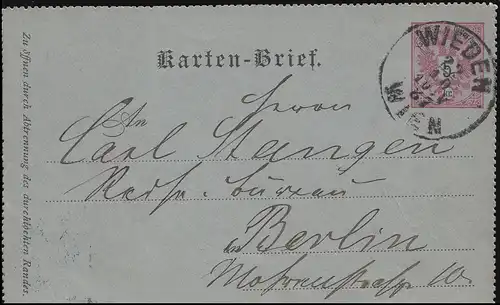 Zu öffnen durch Abtrennung des durchlochten Randes.
Karten-Brief.
WIEDEN
5
WIEN
Herrn
An
Carl Stangen
Reise-bureau
in Berlin
Mohrenstraße 10.